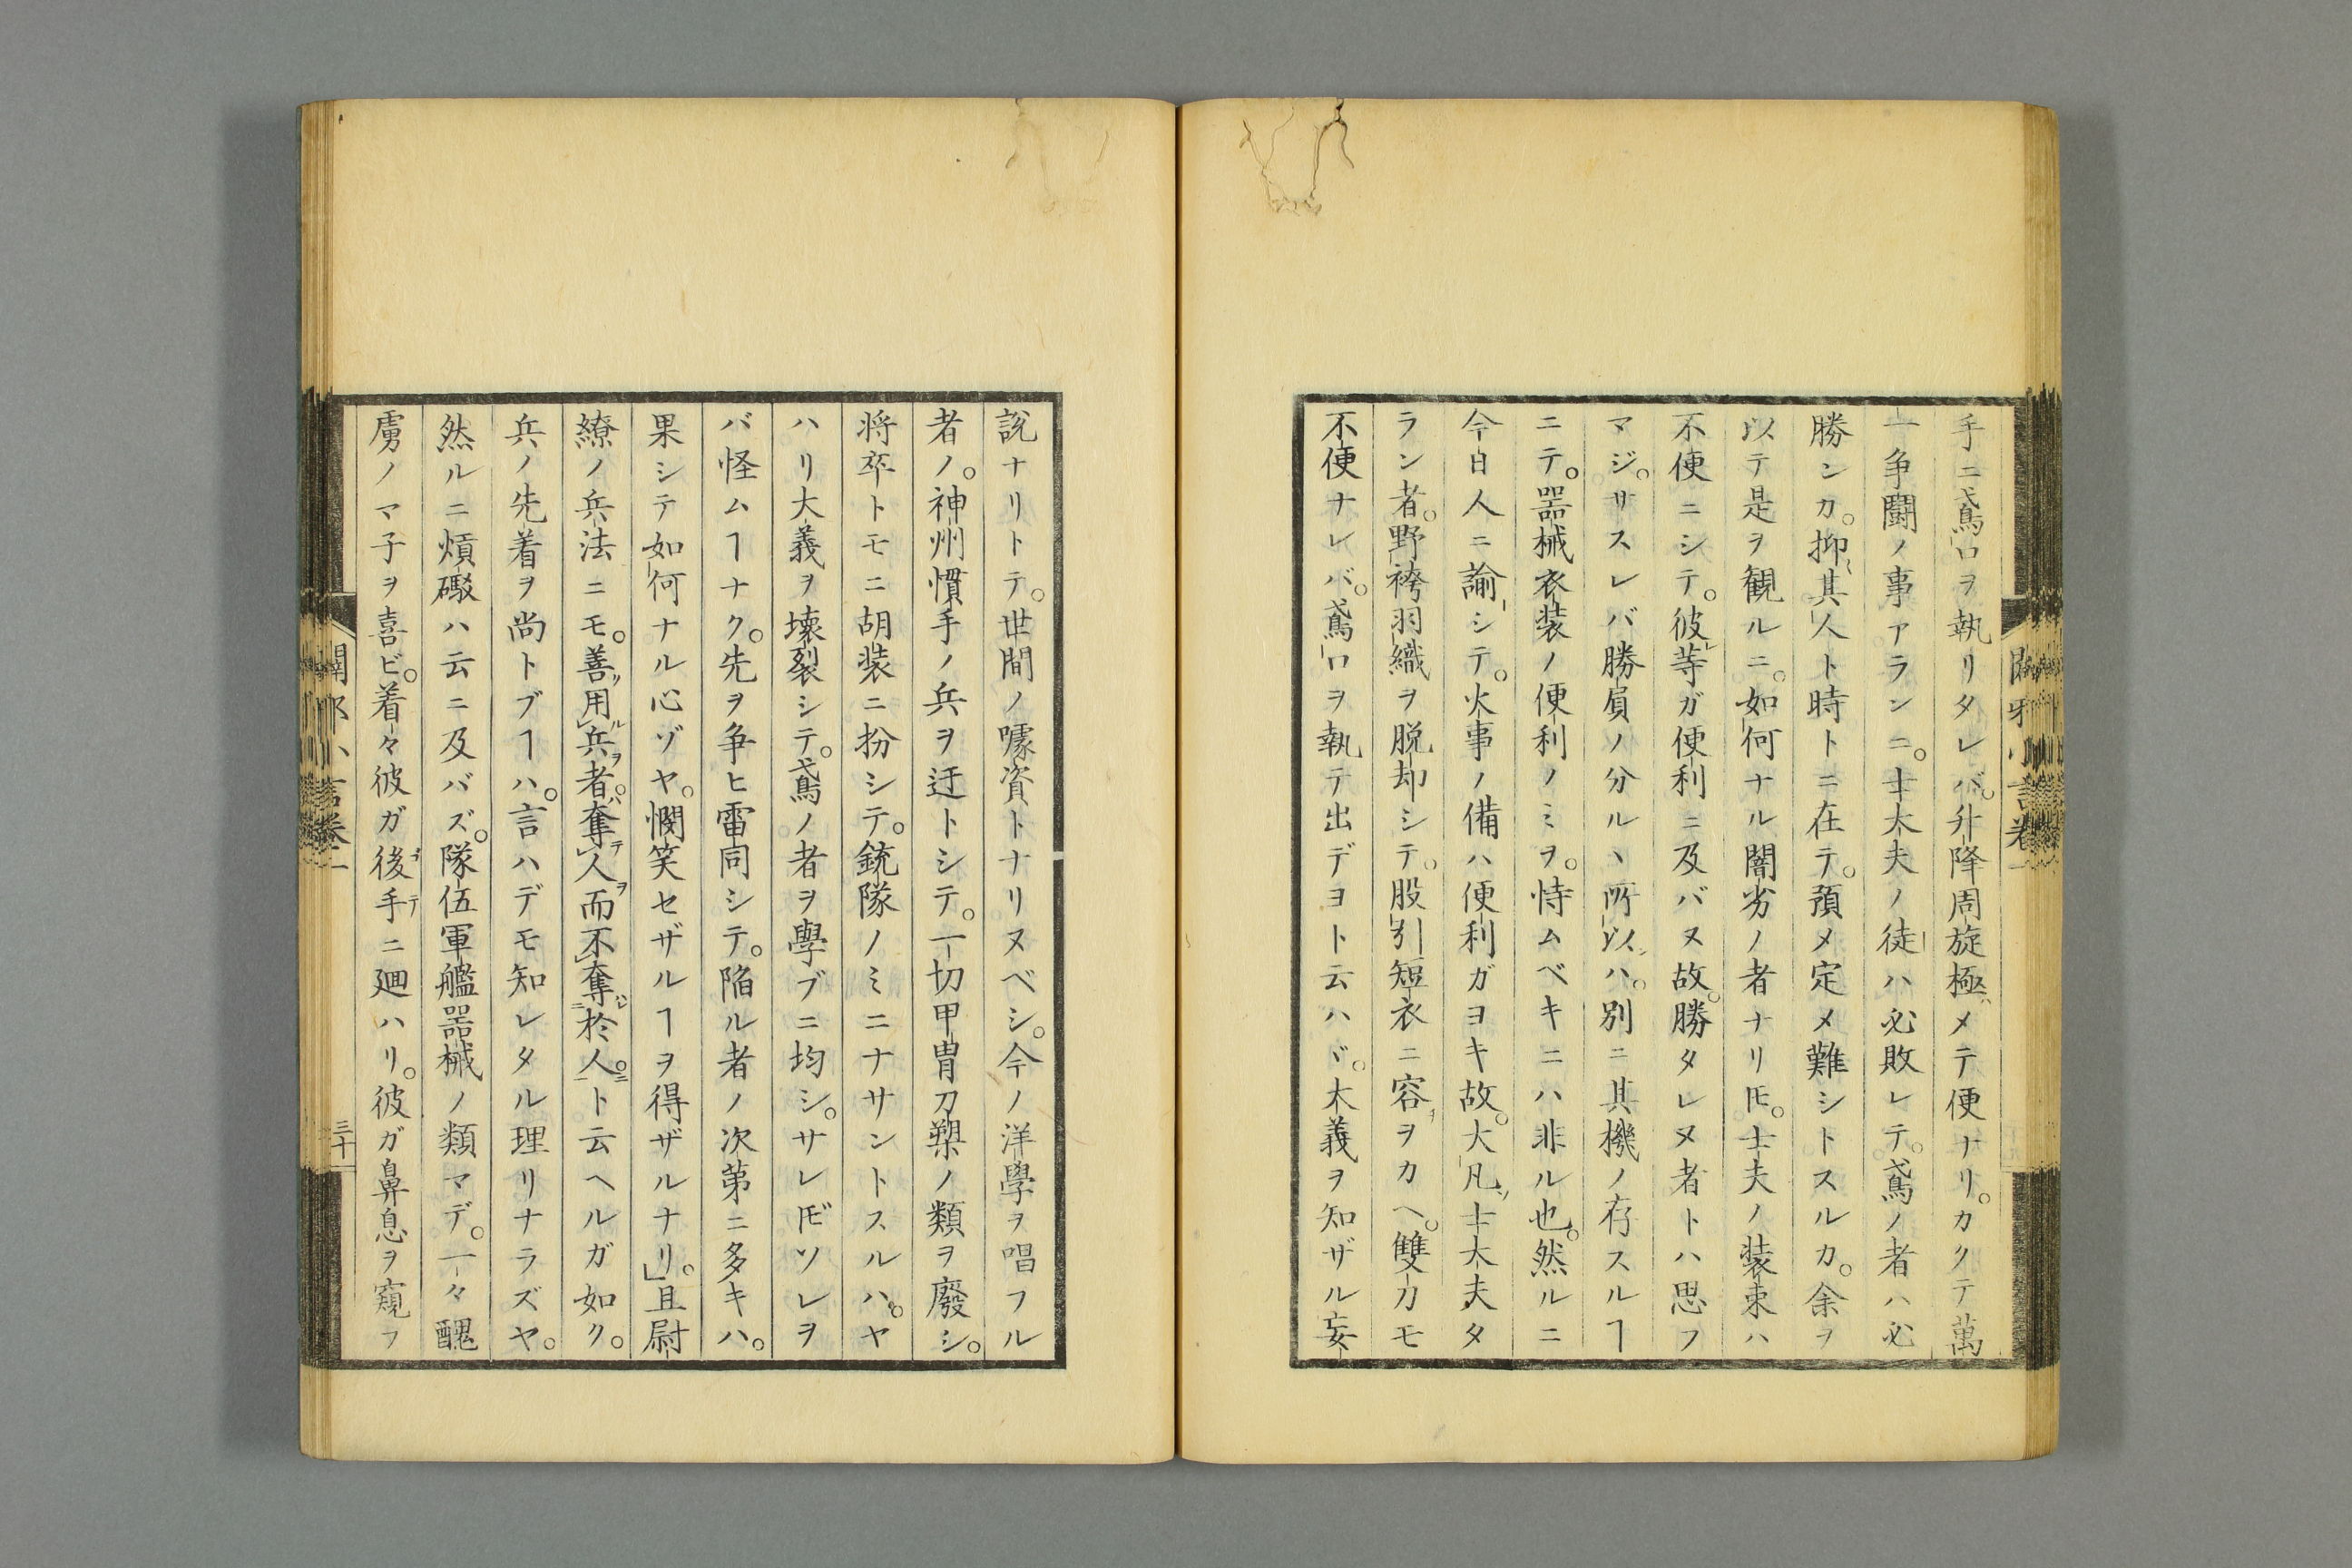 手ニ鳶口ヲ執リタレバ。升降周旋極メテ便ナリ。カクテ萬
一争鬪ノ事アランニ。士大夫ノ徒ハ必敗レテ。鳶ノ者ハ必
勝ンカ。抑其人ト時トニ在テ。預メ定メ難シトスルカ。余ヲ
以テ是ヲ観ルニ。如何ナル闇劣ノ者ナリ𪜈。士夫ノ装束ハ
不便ニシテ。彼等ガ便利ニ及バヌ故。勝タレヌ者トハ思フ
マジ。サスレバ勝負ノ分ルヽ所以ハ。別ニ其機ノ存スルヿ
ニテ。器械衣装ノ便利ノミヲ。恃ムベキニハ非ル也。然ルニ
今日人ニ諭シテ。火事ノ備ハ便利ガヨキ故。大凡士大夫タ
ラン者。野袴羽織ヲ脱却シテ。股引短衣ニ容ヲカヘ。雙刀モ
不便ナレバ。鳶口ヲ執テ出デヨト云ハヾ。大義ヲ知ザル妄
説ナリトテ。世間ノ噱資トナリヌベシ。今ノ洋學ヲ唱フル
者ノ。神州慣手ノ兵ヲ迂トシテ。一切甲冑刀槊ノ類ヲ廢シ。
将卒トモニ胡装ニ扮シテ。銃隊ノミニナサントスルハ。ヤ
ハリ大義ヲ壊裂シテ。鳶ノ者ヲ學ブニ均シ。サレ𪜈ソレヲ
バ怪ムヿナク。先ヲ争ヒ雷同シテ。陥ル者ノ次第ニ多キハ。
果シテ如何ナル心ゾヤ。憫笑セザルヿヲ得ザルナリ。」且尉
繚ノ兵法ニモ。善用兵者。奪人而不奪於人。ト云ヘルガ如ク。
兵ノ先着ヲ尚トブヿハ。言ハデモ知レタル理リナラズヤ。
然ルニ熕礮ハ云ニ及バズ。隊伍軍艦器械ノ類マデ。一々醜
虜ノマ子ヲ喜ビ。着々彼ガ後手ニ廻ハリ。彼ガ鼻息ヲ窺フ
闢邪小言巻二
三十